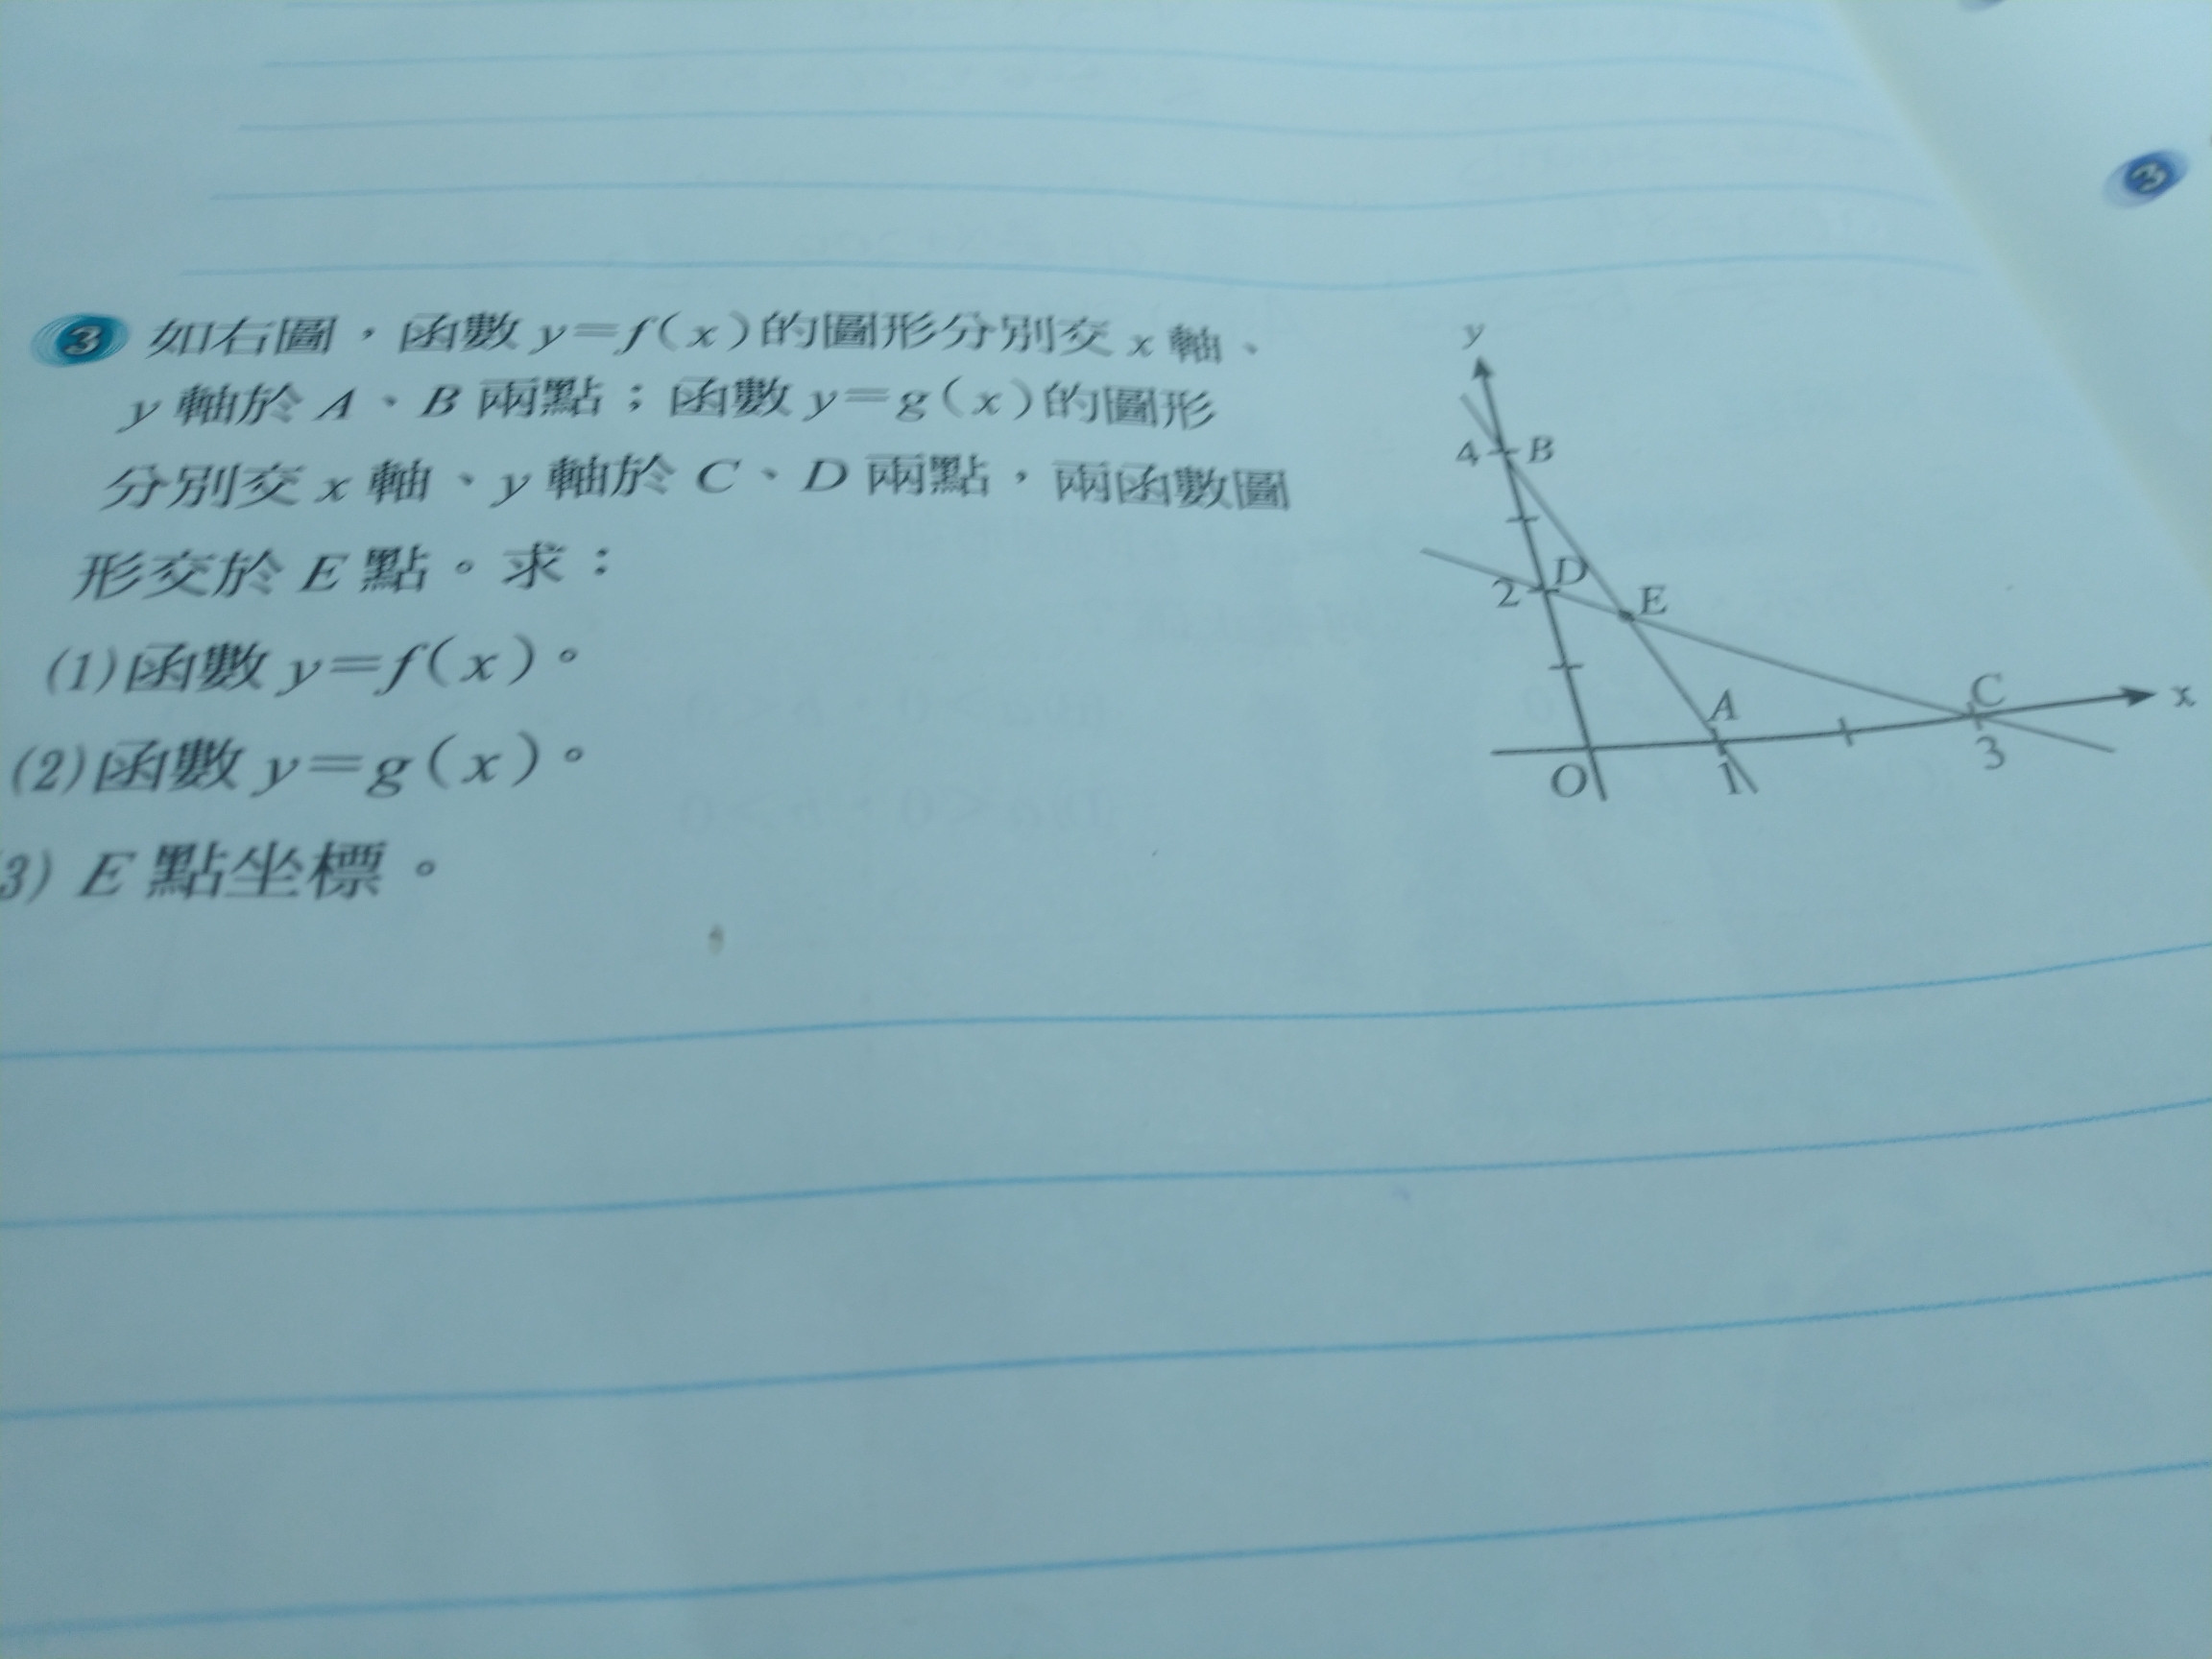 3 如右圖，函數 y=f(x)的圖形分別交 x 軸、
y 軸於 A、B 兩點；函數 y=g(x)的圖形
分別交 x 軸、y 軸於 C、D 兩點，兩函數圖
形交於 E 點。求：
(1)函數 y=f(x)。
(2)函數 y=g(x)。
3) E 點坐標。
y
4 B
2 D
E
A
C
x
O
1
3
3